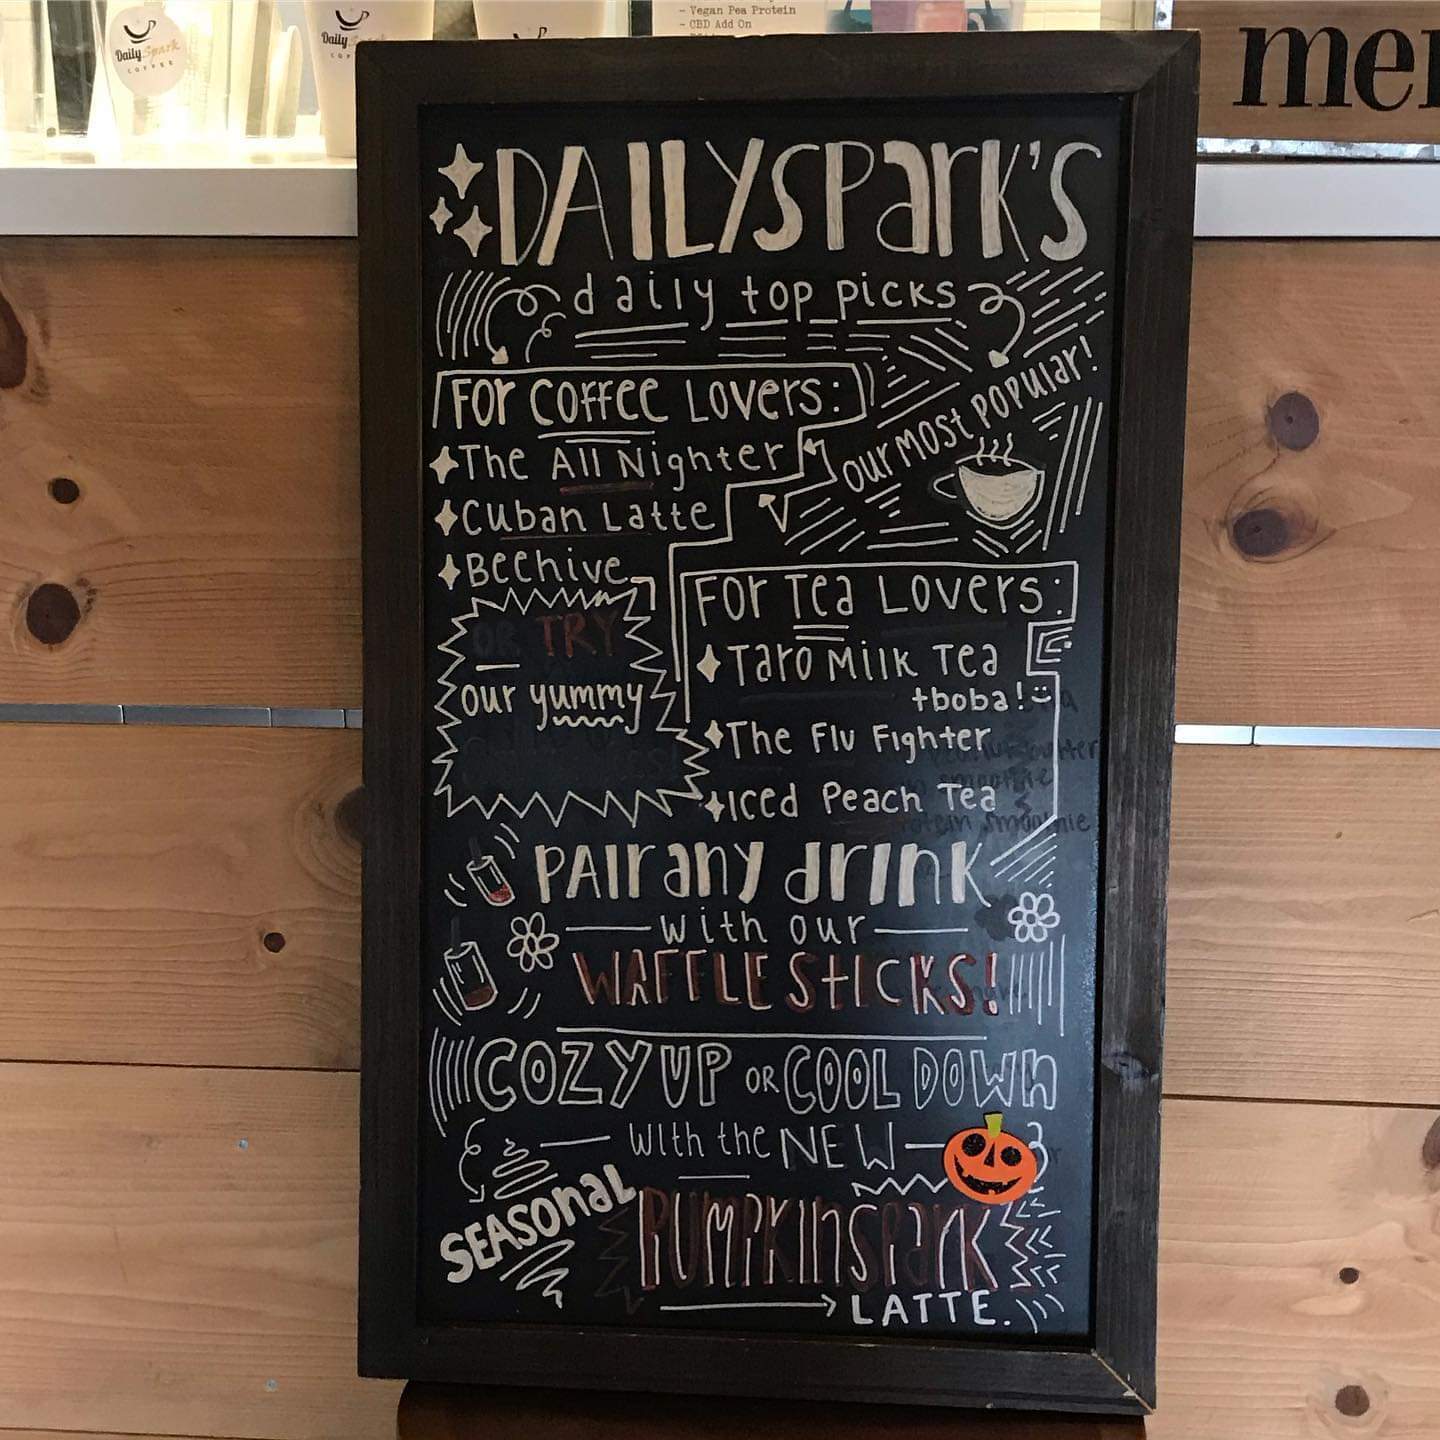 - Vegan Pea Protein
- CBD Add On
Daily Spark
COFFEE
Daily
DAILYSPARK'S
daily top picks
FOR COFFEE LOVERS:
The All Nighter
Cuban Latte
Beehive
OUR MOST POPULAR!
OR TRY
our yummy
FOR TEA LOVERS:
Taro Milk Tea
+boba!
The Flu Fighter
Iced Peach Tea
PAIR any drink
with our
WAFFLE STICKS!
COZY UP OR COOL DOWN
with the NEW
SEASONAL
PUMPKINSPARK
LATTE.